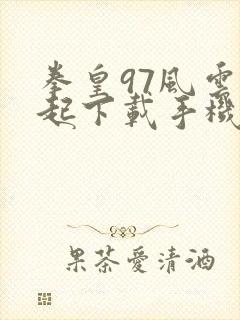 拳皇97風雲
起下載手機
果茶愛清酒